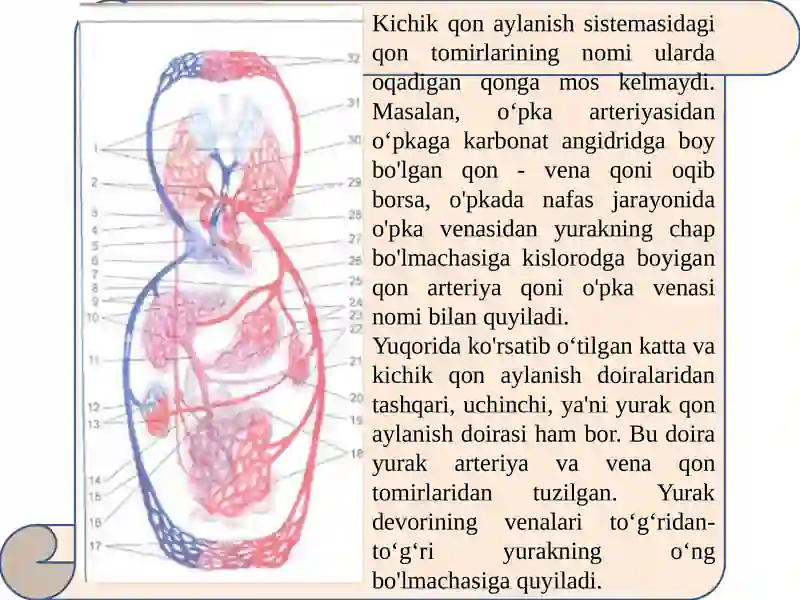 Kichik qon aylanish sistemasidagi
qon tomirlarining nomi ularda
oqadigan qonga mos kelmaydi.
Masalan, o‘pka arteriyasidan
o‘pkaga karbonat angidridga boy
bo'lgan qon - vena qoni oqib
borsa, o'pkada nafas jarayonida
o'pka venasidan yurakning chap
bo'lmachasiga kislorodga boyigan
qon arteriya qoni o'pka venasi
nomi bilan quyiladi.
Yuqorida ko'rsatib o‘tilgan katta va
kichik qon aylanish doiralaridan
tashqari, uchinchi, ya'ni yurak qon
aylanish doirasi ham bor. Bu doira
yurak arteriya va vena qon
tomirlaridan tuzilgan. Yurak
devorining venalari to‘g‘ridan-
to‘g‘ri yurakning o‘ng
bo'lmachasiga quyiladi.
1
2
3
4
5
6
7
8
9
10
11
12
13
14
15
16
17
32
31
30
29
28
27
26
25
24
23
22
21
20
19
18